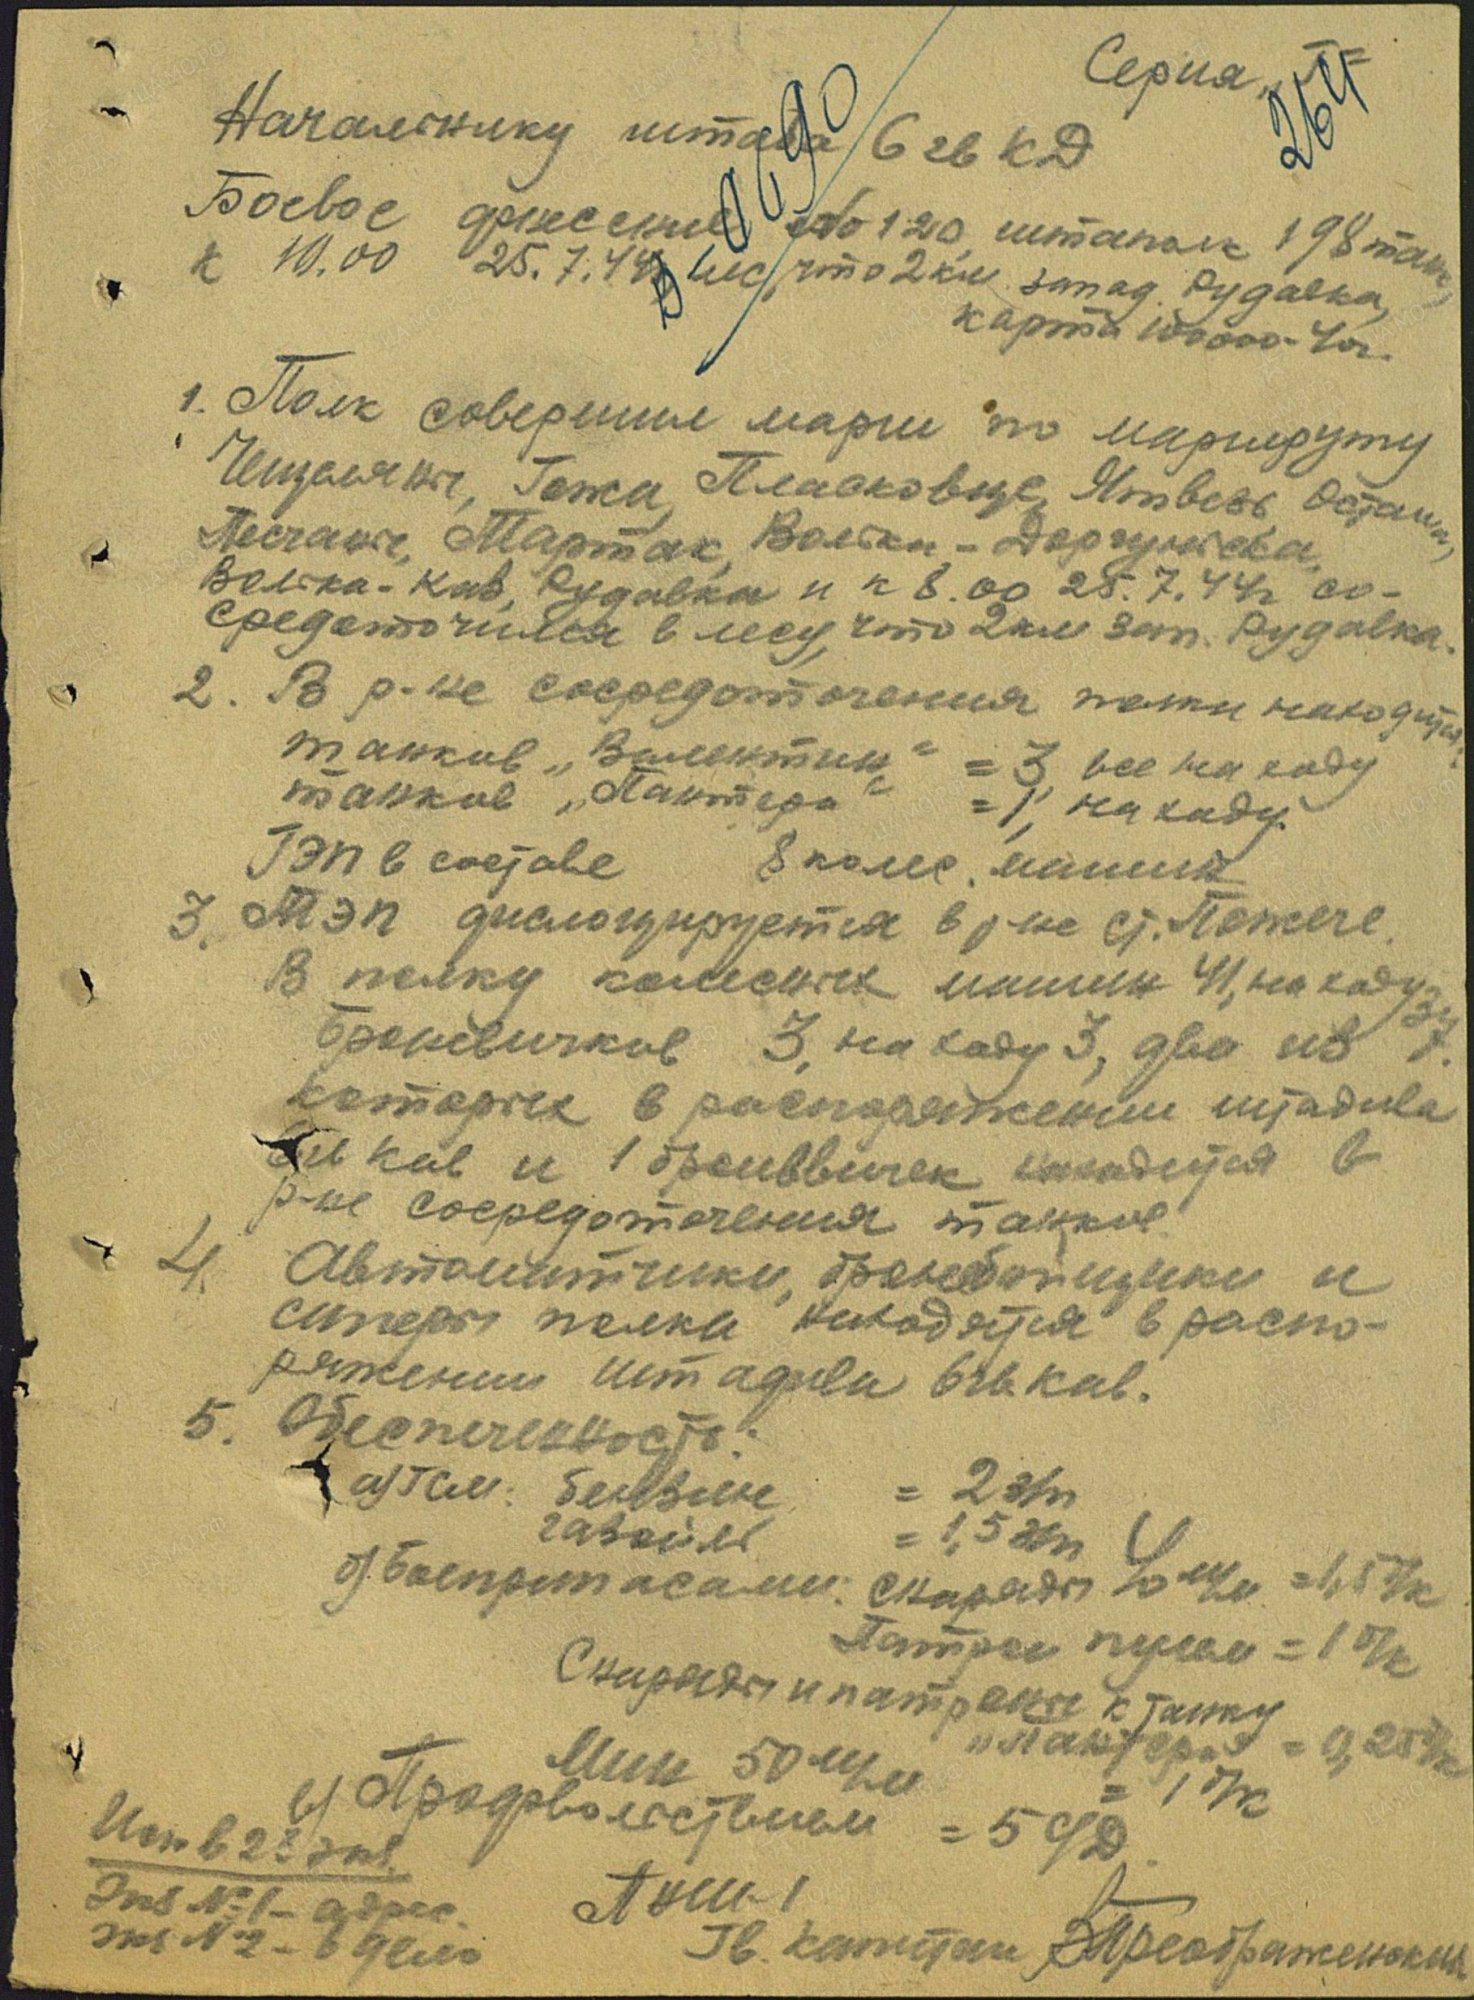 Серия „Г"
264
Начальнику штаба 6 гв КД
Боевое донесение №0120, штаполк 198 танк,
к 10.00 25.7.44г лес, что 2км запад. Рудавка,
карта 100000-41г.
1. Полк совершил марш по маршруту
Гожа, Пласковце, Ятвезь, Осташа,
Песчаны, Мартак, Волька-Доргуньска,
Волька-Кав, Рудавка и к 8.00 25.7.44г со-
средоточился в лесу, что 2км зап. Рудавка.
2. В р-не сосредоточения полка находится:
танков „Валентин" = 3, все на ходу
танков „Пантера" = 1, на ходу.
ГЭП в составе 8 колес. машин
3. ТЭП дислоцируется в р-не ст. Пожече.
В полку колесных машин 41, на ходу 37.
броневичков 3, на ходу 3, два из
которых в распоряжении штадива
6гв кав и 1 броневичек находится в
р-не сосредоточения танков.
4. Автоматчики, бронебойщики и
саперы полка находятся в распо-
ряжении штадива 6гв кав.
5. Обеспеченность:
а) ГСМ: бензин = 2 з/п
газойль = 1,5 з/п
б) боеприпасами: снаряды 40 м/м = 1,5 б/к
Патрон пулем = 1 б/к
Снаряды и патроны к танку
„Пантера" = 0,25 б/к
Мин 50 м/м = 1 б/к
в) Продовольствием = 5 с/д.
Исп в 2х экз.
Экз №1 - адрес.
Экз №2 - в дело
ПНШ-1
Гв. капитан Преображенский